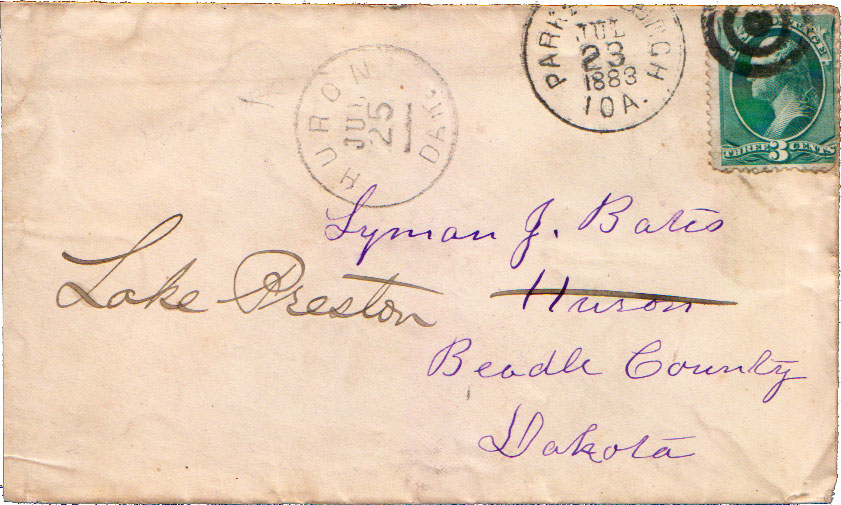 HURON
JUL
25
DAK.
PARKERSBURG
JUL
23
1883
IOA.
THREE 3 CENTS
Lyman J. Bates
Lake Preston
Huron
Beadle County
Dakota